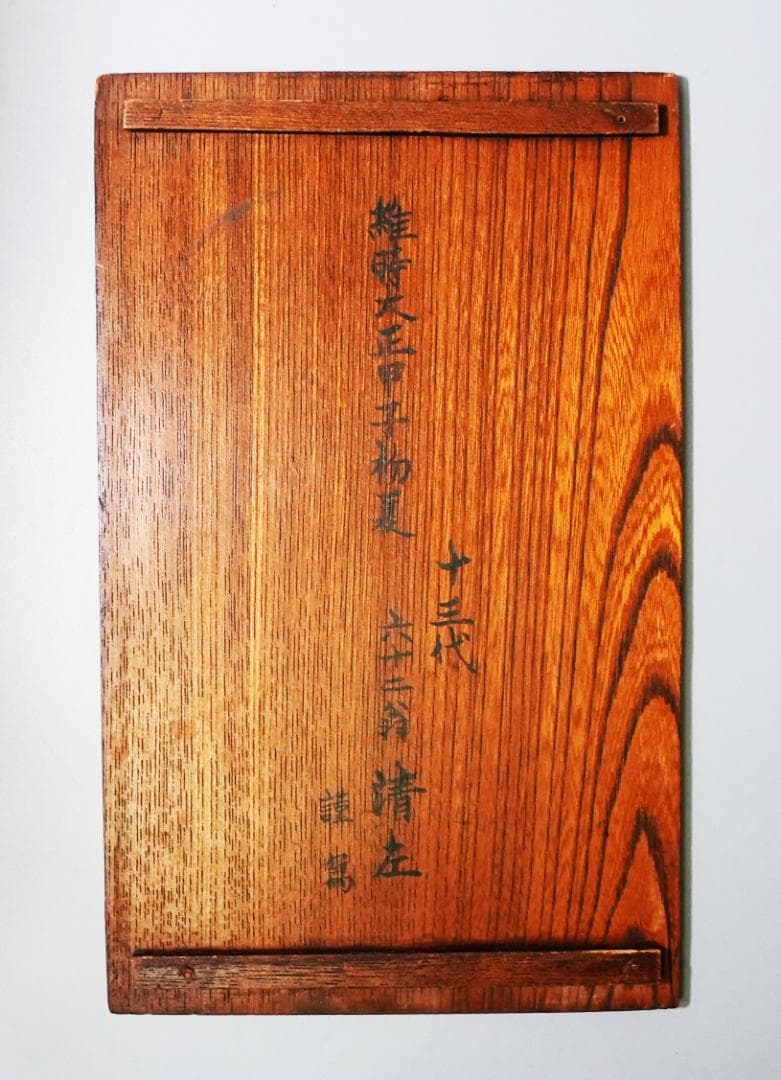 十三代
維時大正甲子初夏 六十二翁 清左
謹写